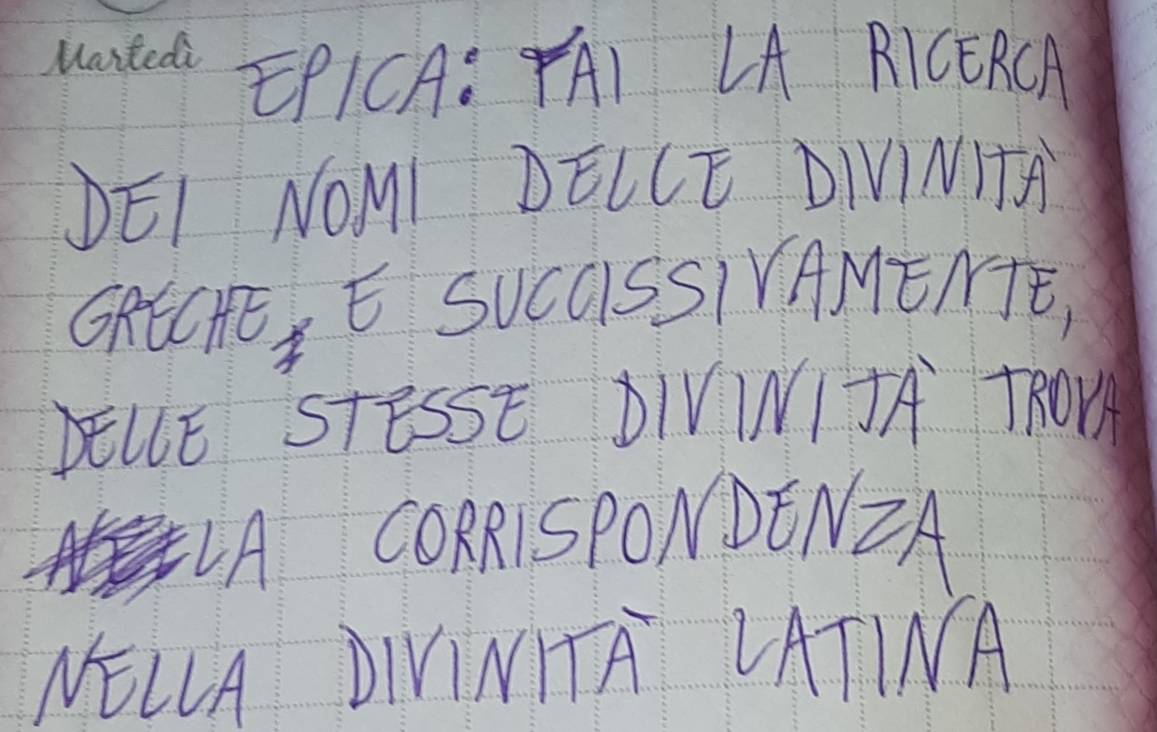 Martedì EPICA: FAI LA RICERCA
DEI NOMI DELLE DIVINITÀ
GRECHE, E SUCCISSIVAMENTE,
DELLE STESSE DIVINITÀ TROVA
LA CORRISPONDENZA
NELLA DIVINITÀ LATINA